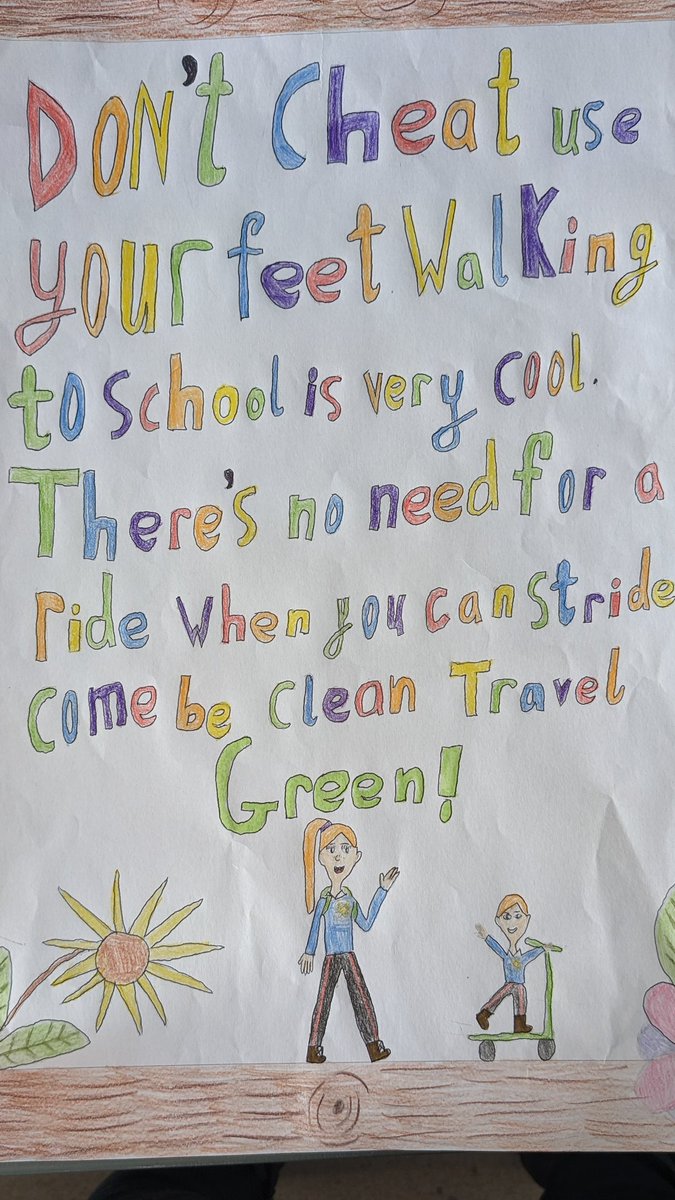 DON't Cheat use
your feet WalKing
to school is very cool.
There's no need for a
ride when you can stride
come be clean Travel
Green!